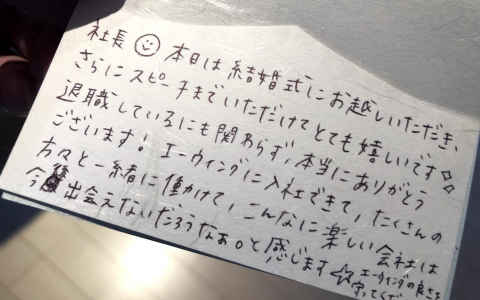 社長☺本日は結婚式にお越しいただき、
さらにスピーチまでいただけてとても嬉しいです◇◇
退職しているにも関わらず、本当にありがとう
ございます。エーウィングに入社できて、たくさんの
方々と一緒に働かけて、こんなに楽しい会社は
今後出会えないだろうなぁ。と感じます☆
エーウィングの良さを
守ってくだ